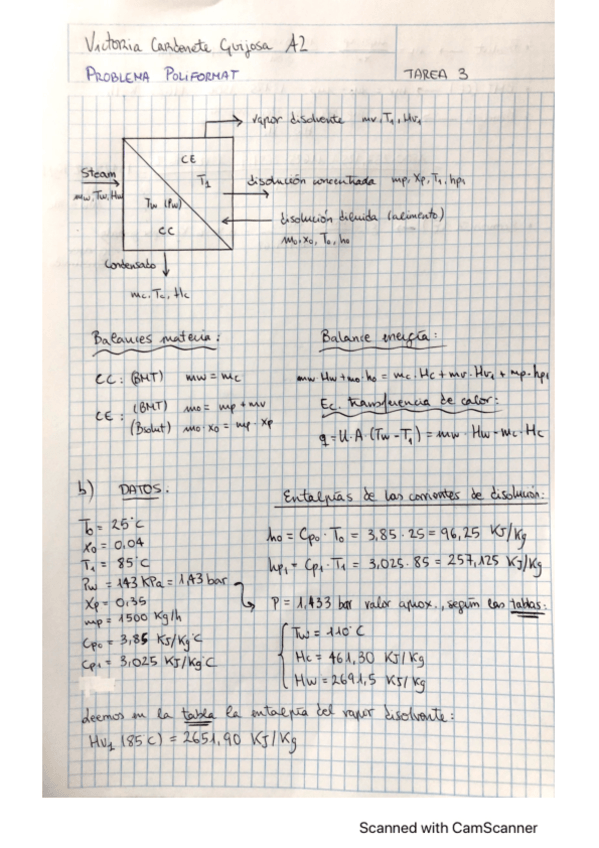 Victoria Cardenete Quijosa A2
PROBLEMA POLIFORMAT TAREA 3
vapor disolvente mv, T₁, Hv₁
CE
T₁
Steam
mw, Tw, Hw
disolución concentrada mp, Xp, T₁, hp₁
Tw (Pw)
CC
disolución diluida (alimento)
mo, xo, To, ho
Condensado
mc, Tc, Hc
Balances materia:
CC: (BMT) mw = mc
CE: (BMT) mo = mp + mv
(Bsolut) mo · xo = mp · Xp
Balance energía:
mw·Hw + mo·ho = mc·Hc + mv·Hv₁ + mp·hp₁
Ec. transferencia de calor:
q = U·A·(Tw - T₁) = mw·Hw - mc·Hc
b) DATOS:
To = 25°C
xo = 0,04
T₁ = 85°C
Pw = 143 KPa = 1,43 bar
Xp = 0,35
mp = 1500 Kg/h
Cpo = 3,85 KJ/Kg°C
Cp₁ = 3,025 KJ/Kg°C
Entalpías de las corrientes de disolución:
ho = Cpo · To = 3,85 · 25 = 96,25 KJ/Kg
hp₁ = Cp₁ · T₁ = 3,025 · 85 = 257,125 KJ/Kg
P = 1,433 bar valor aprox., según las tablas:
Tw = 110°C
Hc = 461,30 KJ/Kg
Hw = 2691,5 KJ/Kg
leemos en la tabla la entalpía del vapor disolvente:
Hv₁ (85°C) = 2651,90 KJ/Kg
Scanned with CamScanner